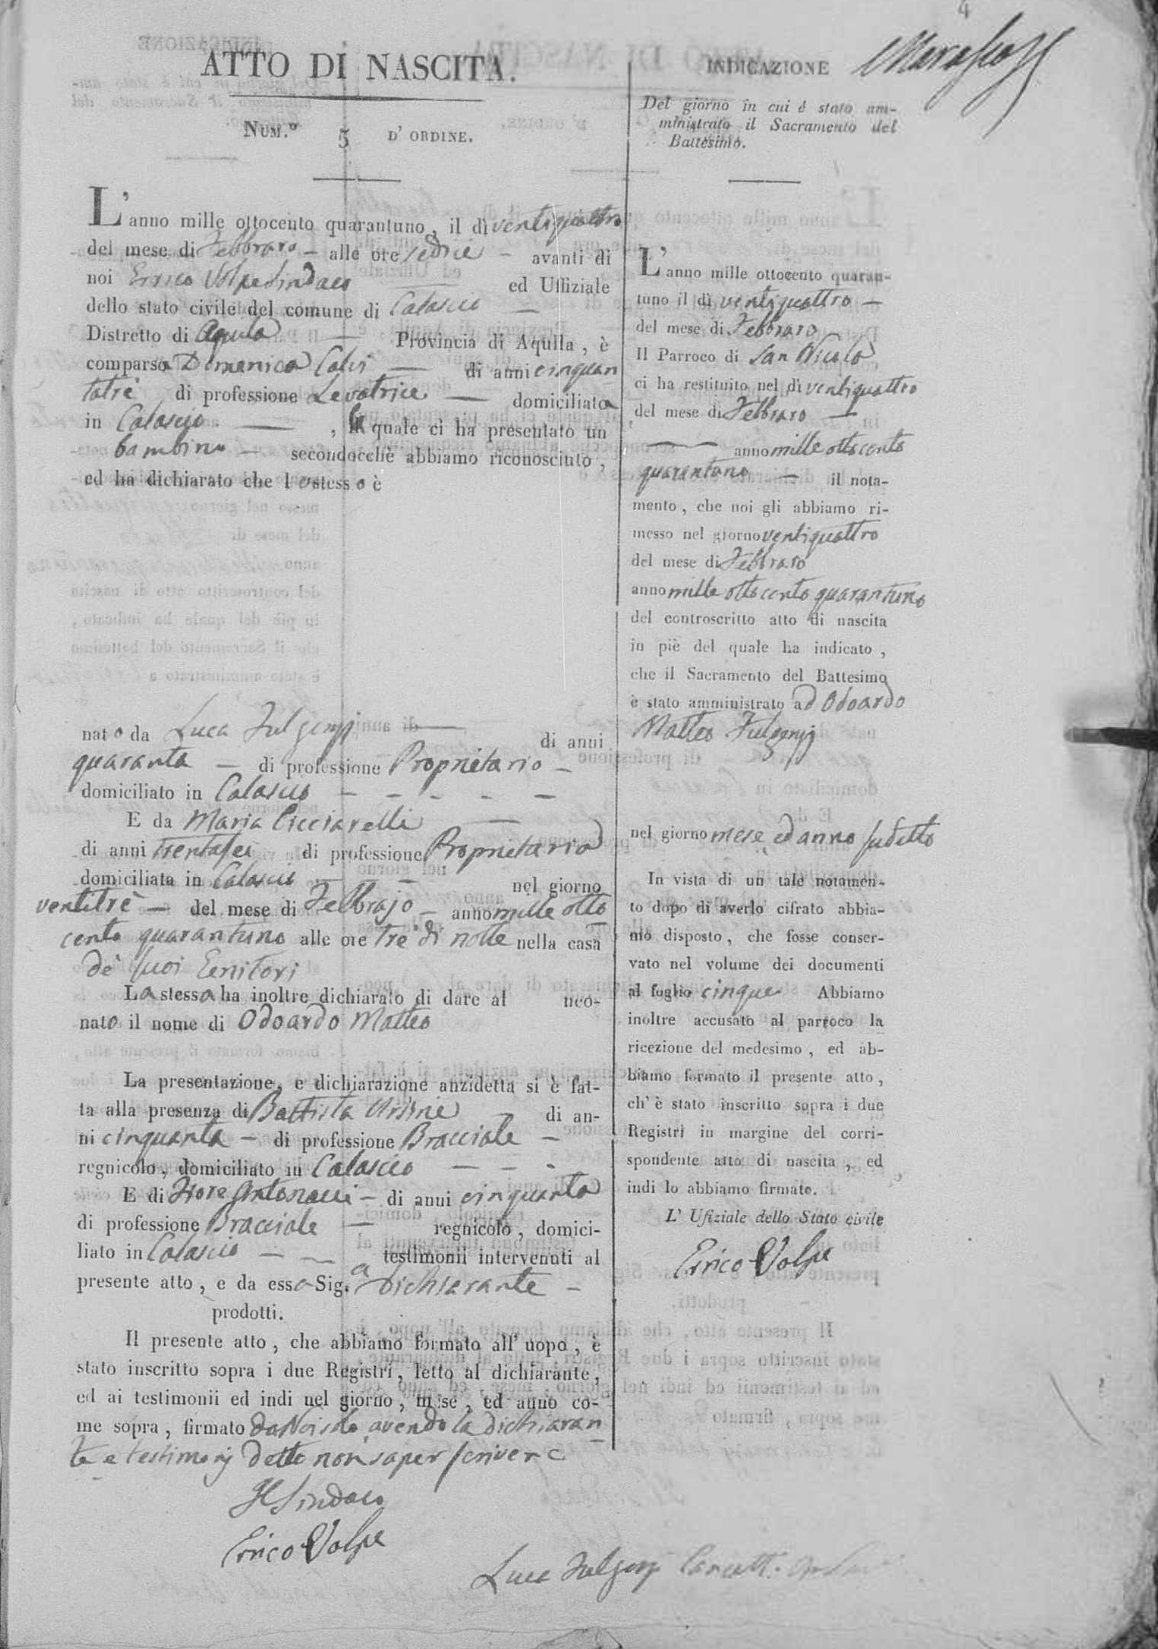 4
ATTO DI NASCITA.
NUM.º 5 D' ORDINE.
L'anno mille ottocento quarantuno, il dì ventiquattro
del mese di Febbraro — alle ore sedici — avanti di
noi Errico Volpe Sindaco ed Uffiziale
dello stato civile del comune di Calascio —
Distretto di Aquila — Provincia di Aquila, è
comparsa Domenica — di anni cinquan
tatrè di professione Levatrice — domiciliata
in Calascio — , la quale ci ha presentato un
bambino — secondocchè abbiamo riconosciuto,
ed ha dichiarato che lo stesso è
nato da Luca Fulgenzj — di anni
quaranta — di professione Proprietario —
domiciliato in Calascio — — — — —
E da Maria Cicciarelli —
di anni trentasei di professione Proprietaria
domiciliata in Calascio — — nel giorno
ventitrè — del mese di Febbrajo — anno mille otto
cento quarantuno alle ore tre di notte nella casa
de' suoi Genitori
La stessa ha inoltre dichiarato di dare al neo-
nato il nome di Odoardo Matteo
La presentazione, e dichiarazione anzidetta si è fat-
ta alla presenza di Battista — di an-
ni cinquanta — di professione Bracciale —
regnicolo, domiciliato in Calascio — — -
E di Fiore Antonacci — di anni cinquanta
di professione Bracciale — regnicolo, domici-
liato in Calascio — — testimonii intervenuti al
presente atto, e da essa Sig.a Dichiarante —
prodotti.
Il presente atto, che abbiamo formato all' uopo, è
stato inscritto sopra i due Registri, letto al dichiarante,
ed ai testimonii ed indi nel giorno, mese, ed anno co-
me sopra, firmato da Noi solo, avendo la dichiaran
te e testimonj detto non saper scrivere
Il Sindaco
Errico Volpe
Luca Fulgenzj
INDICAZIONE
Del giorno in cui è stato am-
ministrato il Sacramento del
Battesimo.
L'anno mille ottocento quaran-
tuno il dì ventiquattro —
del mese di Febbraro
Il Parroco di San Nicola
ci ha restituito nel dì ventiquattro
del mese di Febbraro —
— anno mille ottocento
quarantuno — il nota-
mento, che noi gli abbiamo ri-
messo nel giorno ventiquattro
del mese di Febbraro
anno mille ottocento quarantuno
del controscritto atto di nascita
in piè del quale ha indicato,
che il Sacramento del Battesimo
è stato amministrato ad Odoardo
Matteo Fulgenzj
nel giorno mese, ed anno sudetto
In vista di un tale notamen-
to dopo di averlo cifrato abbia-
mo disposto, che fosse conser-
vato nel volume dei documenti
al foglio cinque Abbiamo
inoltre accusato al parroco la
ricezione del medesimo, ed ab-
biamo formato il presente atto,
ch' è stato inscritto sopra i due
Registri in margine del corri-
spondente atto di nascita, ed
indi lo abbiamo firmato.
L' Ufiziale dello Stato civile
Errico Volpe